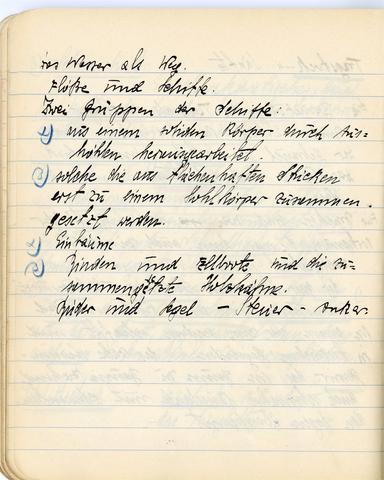 das Wasser als Weg.
Flöße und Schiffe.
Zwei Gruppen der Schiffe:
1) aus einem soliden Körper durch Aus-
höhlen herausgearbeitet,
2) solche die aus flächenhaften Stücken
erst zu einem Hohlkörper zusammen-
gesetzt werden.
1) Einbäume
2) Rinden und Fellboote und die zu-
sammengesetzte Holzkähne.
Ruder und Segel – Steuer – Anker.